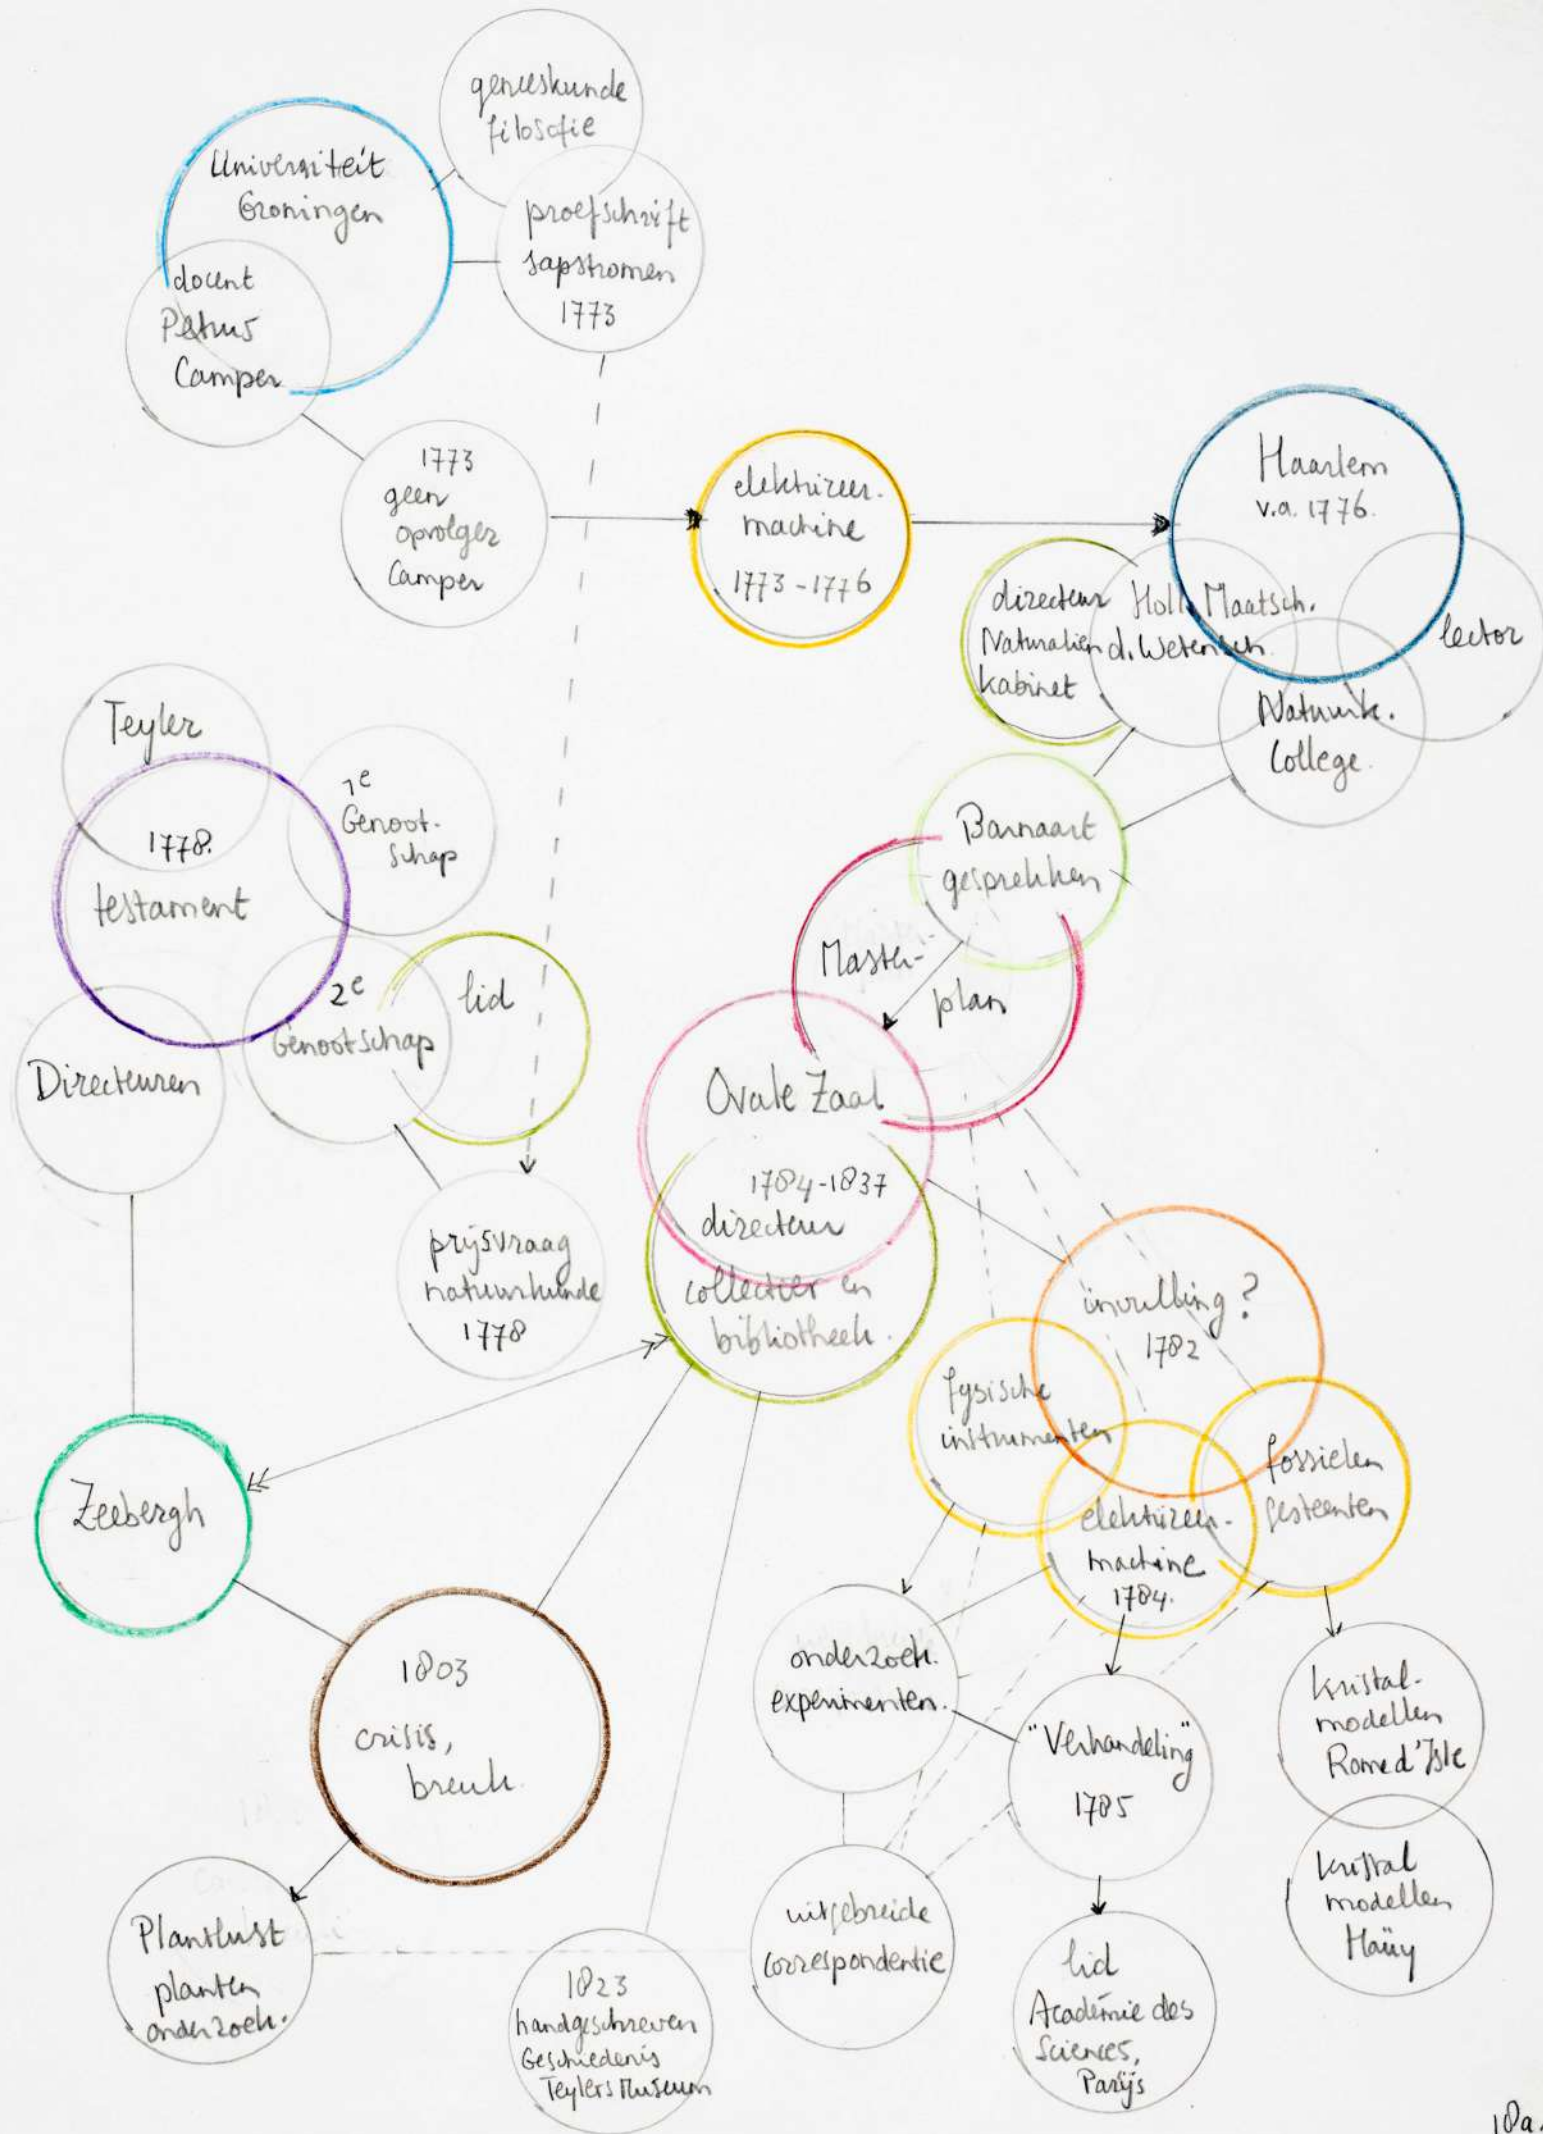 geneeskunde
filosofie
Universiteit
Groningen
proefschrift
sapstromen
1773
docent
Petrus
Camper
1773
geen
opvolger
Camper
elektriseer-
machine
1773-1776
Haarlem
v.a. 1776.
directeur
Naturaliën
kabinet
Holl. Maatsch.
d. Wetensch.
lector
Natuurk.
College.
Teyler
1778.
testament
1e
Genoot-
schap
2e
Genootschap
lid
Directeuren
Barnaart
gesprekken
Master-
plan
Ovale Zaal
1784-1837
directeur
collecties en
bibliotheek.
prijsvraag
natuurkunde
1778
invulling?
1782
fysische
instrumenten
elektriseer-
machine
1784.
fossielen
gesteenten
Zeebergh
1803
crisis,
breuk.
onderzoek.
experimenten.
"Verhandeling"
1785
kristal-
modellen
Romé d'Isle
kristal
modellen
Haüy
Plantlust
planten
onderzoek.
1823
handgeschreven
Geschiedenis
Teylers Museum
uitgebreide
correspondentie
lid
Académie des
Sciences,
Parijs
18a.